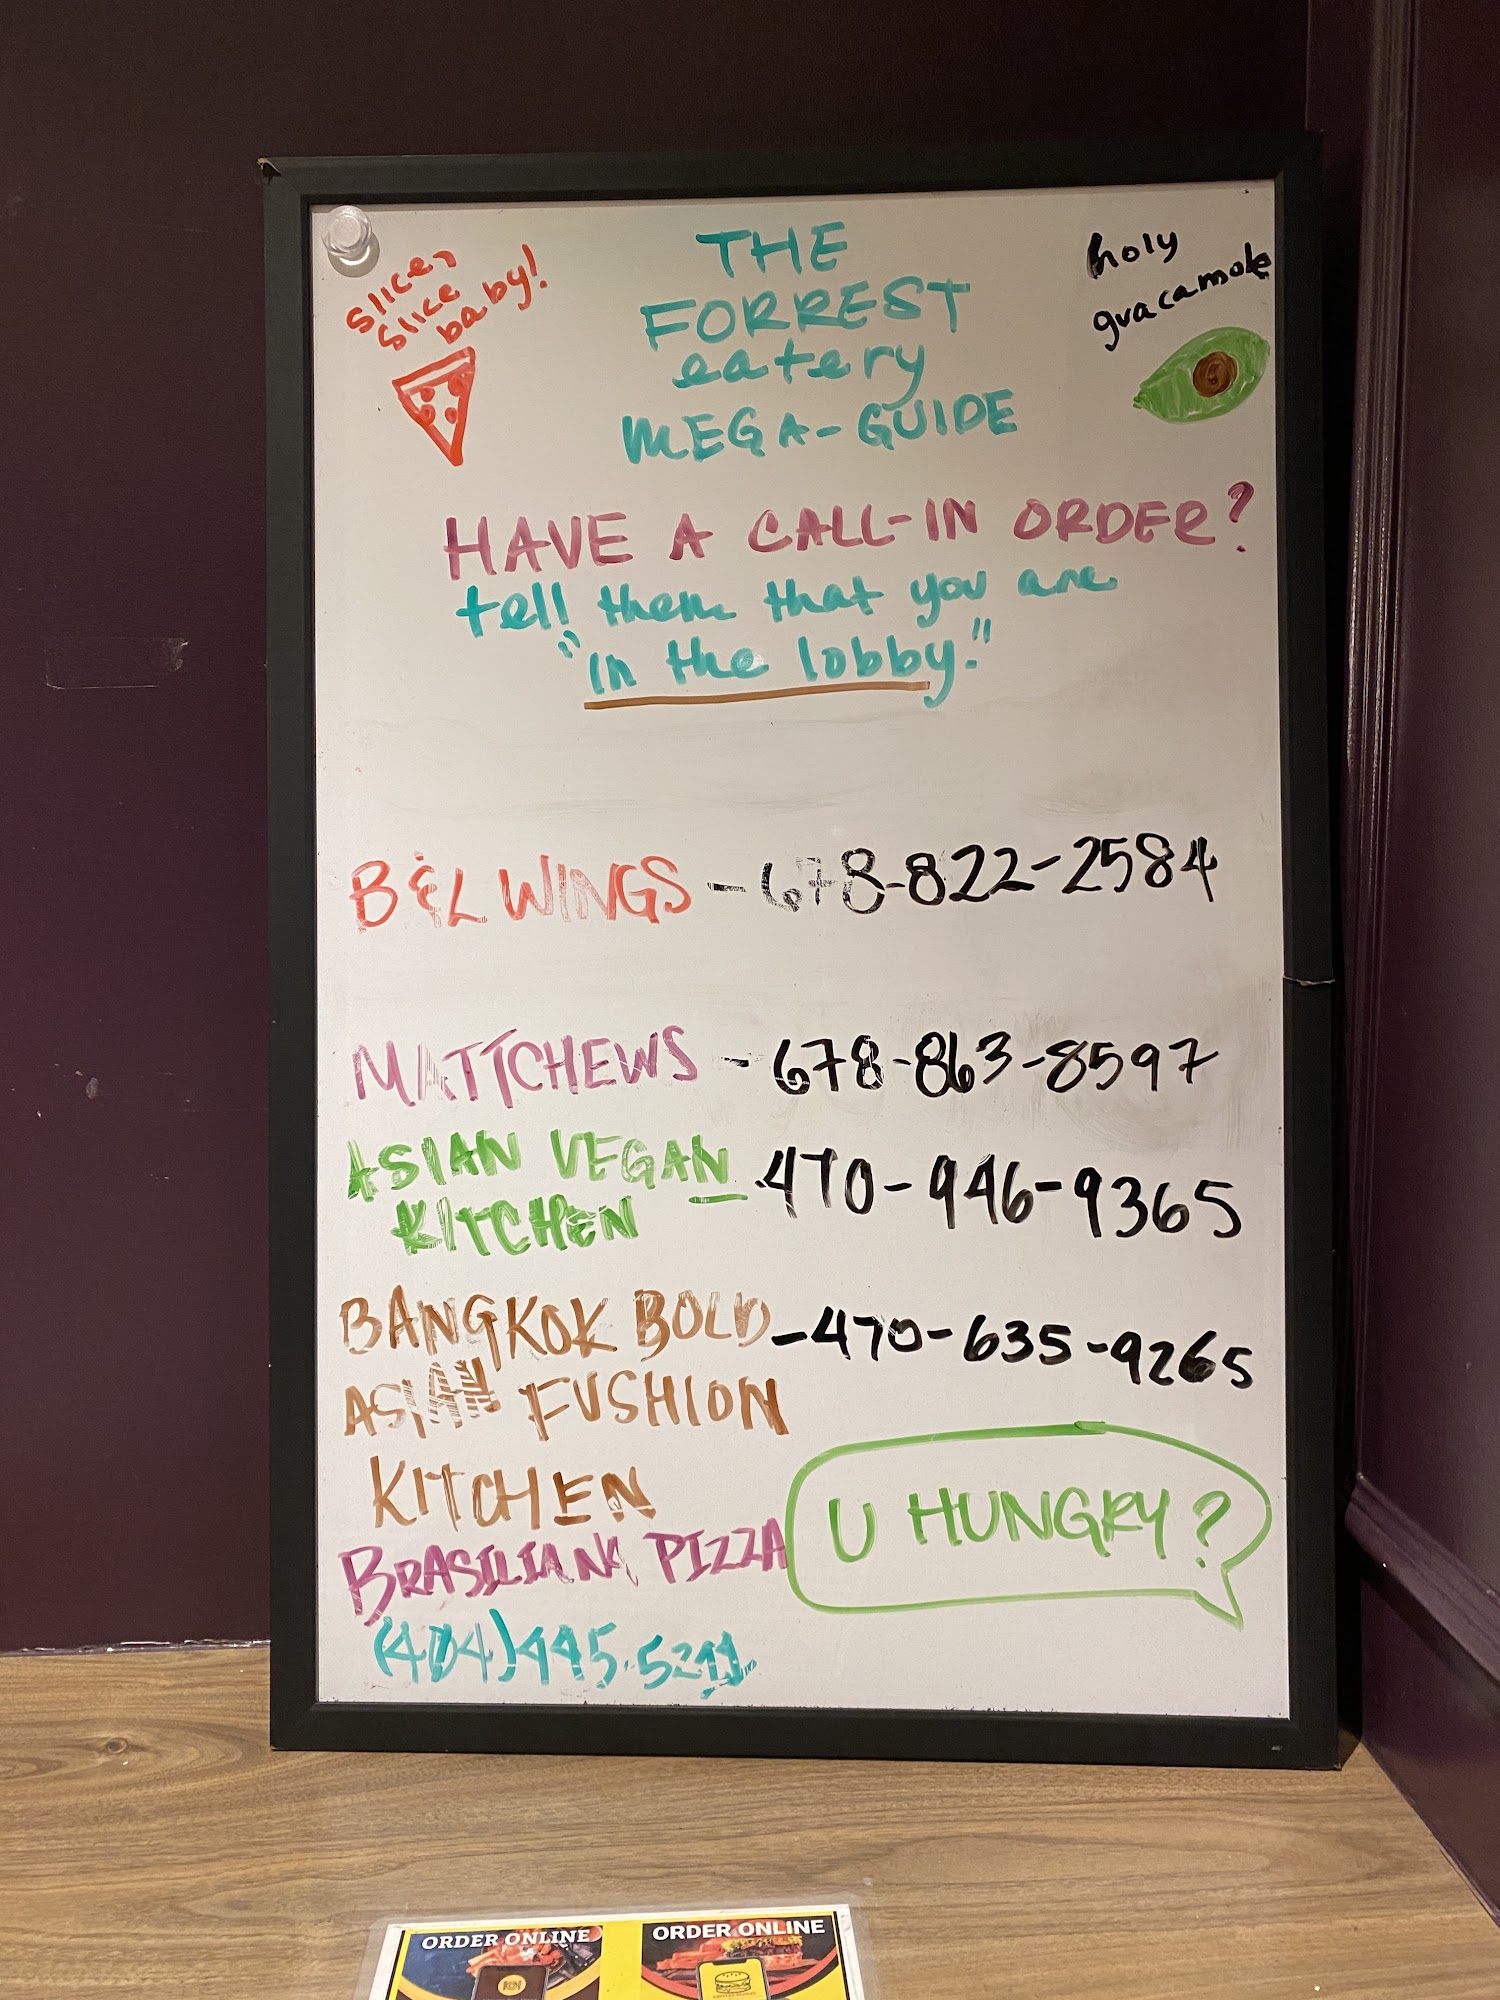 slice, slice baby!
THE
FORREST
eatery
MEGA-GUIDE
holy
guacamole
HAVE A CALL-IN ORDER?
tell them that you are
"in the lobby."
B&L WINGS - 678-822-2584
MATTCHEWS - 678-863-8597
ASIAN VEGAN 470-946-9365
KITCHEN
BANGKOK BOLD - 470-635-9265
ASIAN FUSHION
KITCHEN
U HUNGRY?
BRASILIANA PIZZA
ORDER ONLINE
ORDER ONLINE